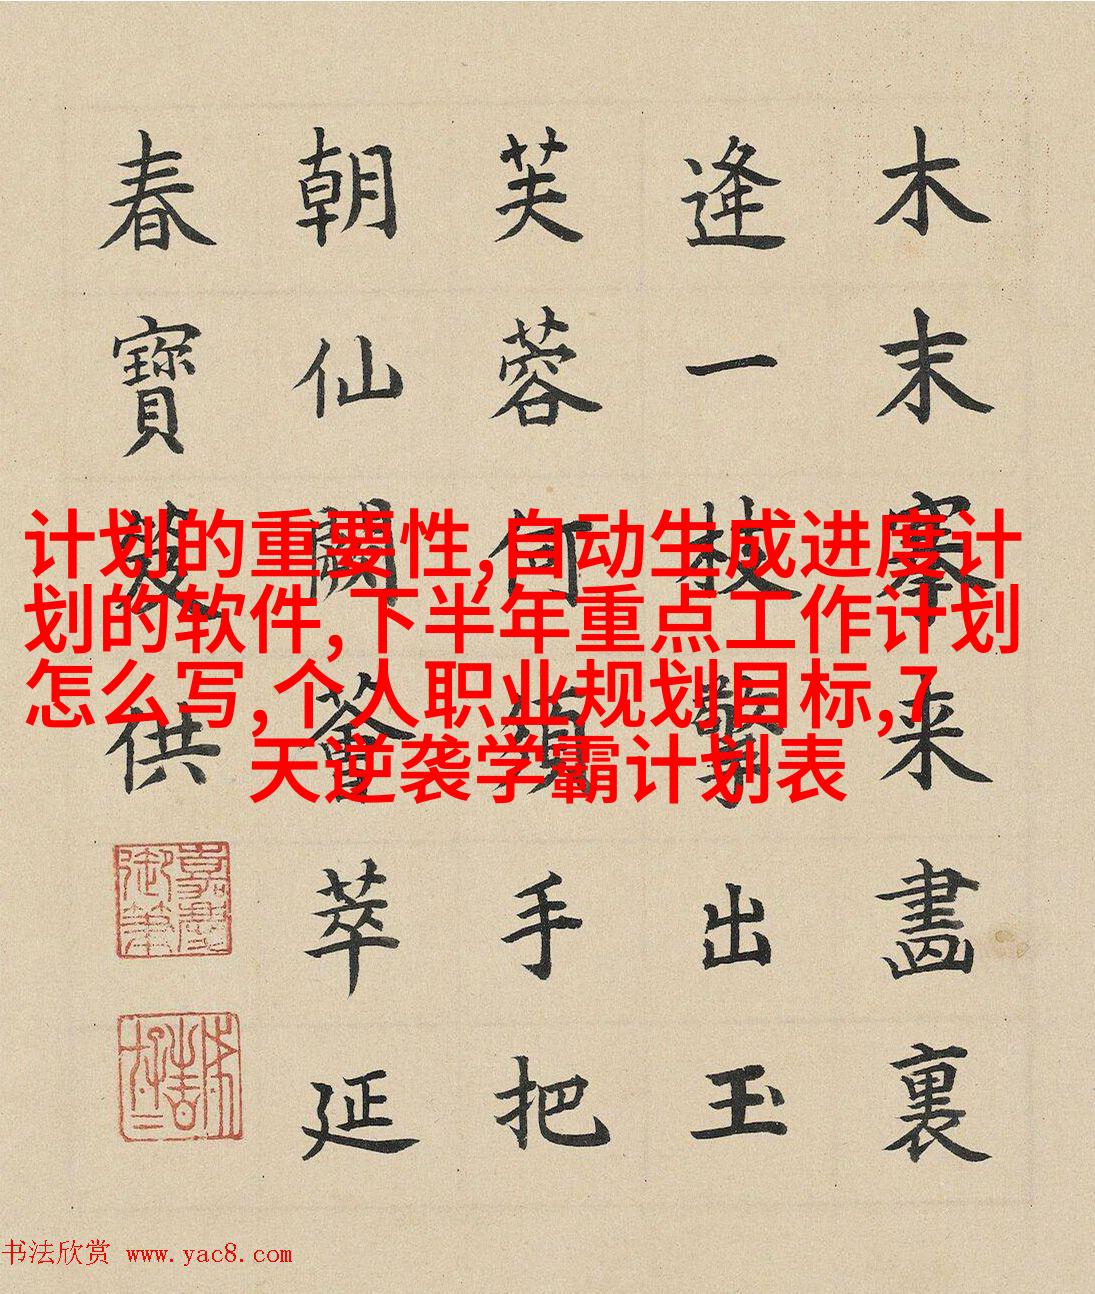 木末搴来畫裏
逢一枝擎出玉
芙蓉何須手把
朝仙闕薈萃延
春寶供
嘉慶御筆
计划的重要性,自动生成进度计
划的软件,下半年重点工作计划
怎么写,个人职业规划目标,7
天逆袭学霸计划表
书法欣赏 www.yac8.com